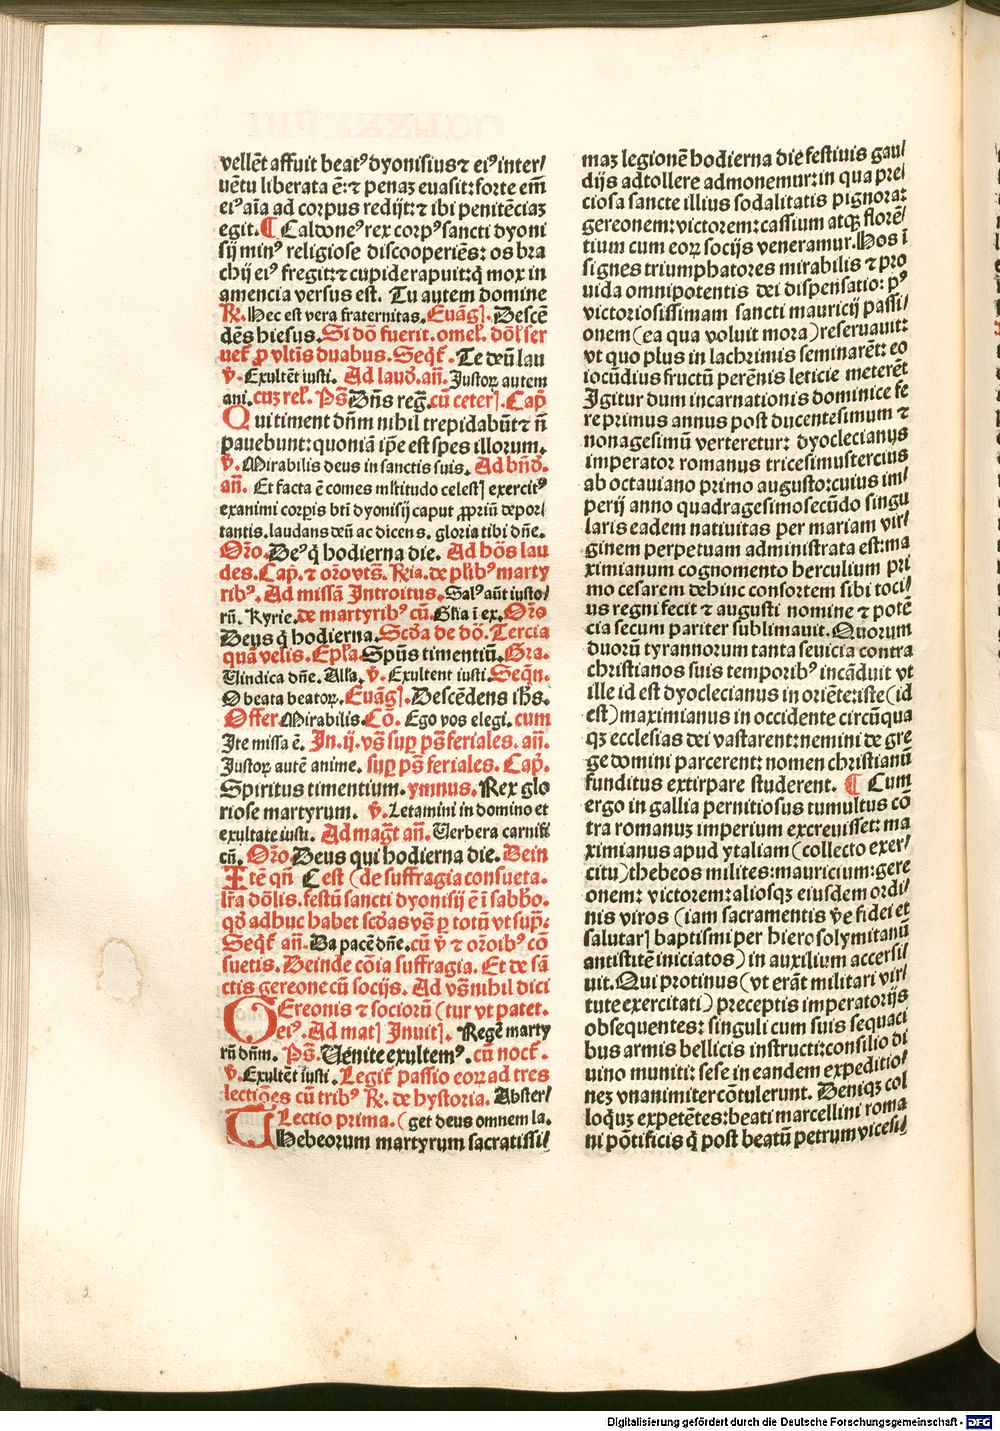 vellēt affuit beatꝰ dyonisiusꝛ eiꝰ inter/
uētu liberata ē:ꝛ penaꝫ euasit:forte em̄
eiꝰ aīa ad corpus redijt:ꝛ ibi penitēciaꝫ
egit.¶ Caldoneꝰ rex corpꝰ sancti dyoni
sij minꝰ religiose discooperiēs: os bra
chij eiꝰ fregit:ꝛ cupide rapuit:q̄ mox in
amencia versus est. Tu autem domine
R̄. Hec est vera fraternitas. Euāgꝭ. Descē
dēs hiesus. Si dō fuerit. omeł. dōł ser
uet̄ ꝑ vltīs duabus. Seqt̄. Te deū lau
v̄. Exultēt iusti. Ad laud̄. an̄. Justoꝝ autem
ani. cuꝫ reł. Ps̄ Dn̄s reḡ. cū ceterꝭ. Cap̄
Qui timent dn̄m nihil trepidabūtꝛ n̄
pauebunt: quoniā ip̄e est spes illorum.
v̄. Mirabilis deus in sanctis suis. Ad bn̄d̄.
an̄. Et facta ē comes mltitudo celestꝭ exercitꝰ
exanimi corpīs bt̄i dyonisij caput ꝓpriū depor/
tantis. laudans deū ac dicens. gloria tibi dn̄e.
Or̄o. Deꝰ q̄ hodierna die. Ad hōs lau
des. Cap̄. ꝛ or̄o vts̄. R̄ia. de pl̄ibꝰ marty
ribꝰ. Ad missā Introitus. Salꝰ aūt iusto/
rū. Kyrie. de martyribꝰ cū. Gl̄ia ī ex. Or̄o
Deus q̄ hodierna. Scd̄a de dō. Tercia
quā velis. Epl̄a. Spūs timentiū. Gra.
Uindica dn̄e. Alla. v̄. Exultent iusti. Seqn̄.
O beata beatoꝝ. Euāgꝭ. Descēdens ih̄s.
Offer̄. Mirabilis. Cō. Ego vos elegi. cum
Ite missa ē. In. ij. vs̄ suꝑ ps̄ feriales. an̄.
Justoꝝ autē anime. suꝑ ps̄ feriales. Cap̄.
Spiritus timentium. ymnus. Rex glo
riose martyrum. v̄. Letamini in domino et
exultate iusti. Ad maḡt an̄. Uerbera carnifi
cū. Or̄o. Deus qui hodierna die. Dein
Itē qn̄ Cest (de suffragia consueta.
lr̄a dōlis. festū sancti dyonisij ē ī sabb̄o.
qd̄ adhuc habet scd̄as vs̄ ꝑ totū vt sup̄:
Seqt̄ an̄. Da pacē dn̄e. cū v̄ ꝛ or̄oibꝰ cō
suetis. Deinde cōia suffragia. Et de sā
ctis gereone cū socijs. Ad vs̄ nihil dici
GEreonis ꝛ sociorū (tur vt patet.
eiꝰ. Ad matꝭ Inuitꝭ. Regē marty
rū dn̄m. Ps̄. Uenite exultemꝰ. cū noct̄.
v̄. Exultēt iusti. Legit̄ passio eoꝝ ad tres
lectiōes cū tribꝰ R̄. de hystoria. Abster/
Lectio prima. (get deus omnem la.
THebeorum martyrum sacratissi/
maꝫ legionē hodierna die festiuis gau/
dijs adtollere admonemur: in qua pre/
ciosa sancte illius sodalitatis pignora:
gereonem: victorem: cassium atqꝫ florē/
tium cum eoꝝ socijs veneramur. Hos ī
signes triumphatores mirabilis ꝛ pro
uida omnipotentis dei dispensatio: pꝰ
victoriosissimam sancti mauricij passi/
onem (ea qua voluit mora) reseruauit:
vt quo plus in lachrimis seminarēt: eo
iocūdius fructū perēnis leticie meterēt
Igitur dum incarnationis dominice fe
re primus annus post ducentesimum ꝛ
nonagesimū verteretur: dyoclecianus
imperator romanus tricesimustercius
ab octauiano primo augusto: cuius im/
perij anno quadragesimosecūdo singu
laris eadem natiuitas per mariam vir/
ginem perpetuam administrata est: ma
ximianum cognomento herculium pri
mo cesarem dehinc consortem sibi toci/
us regni fecit ꝛ augusti nomine ꝛ potē
cia secum pariter sublimauit. Quorum
duorū tyrannorum tanta seuicia contra
christianos suis temporibꝰ incāduit vt
ille id est dyoclecianus in oriēte: iste (id
est) maximianus in occidente circūqua
qꝫ ecclesias dei vastarent: nemini de gre
ge domini parcerent: nomen christianū
funditus extirpare studerent. ¶ Cum
ergo in gallia pernitiosus tumultus cō
tra romanuꝫ imperium excreuisset: ma
ximianus apud ytaliam (collecto exer/
citu) thebeos milites: mauricium: gere
onem: victorem: aliosqꝫ eiusdem ordi/
nis viros (iam sacramentis v̄e fidei et
salutarꝭ baptismi per hierosolymitanū
antistitē iniciatos) in auxilium accersi/
uit. Qui protinus (vt erāt militari vir/
tute exercitati) preceptis imperatorijs
obsequentes: singuli cum suis sequaci
bus armis bellicis instructi: consilio di
uino muniti: sese in eandem expeditio/
neꝫ vnanimiter cōtulerunt. Deniqꝫ col
loquꝫ expetētes: beati marcellini roma
ni pōtificis q̄ post beatū petrum vicesi/
Digitalisierung gefördert durch die Deutsche Forschungsgemeinschaft - DFG